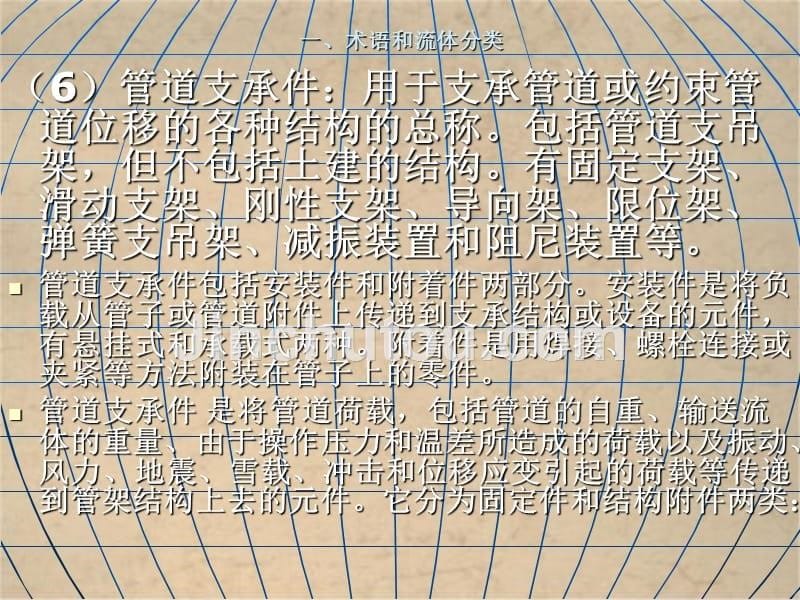 一、术语和流体分类
（6）管道支承件：用于支承管道或约束管
道位移的各种结构的总称。包括管道支吊
架，但不包括土建的结构。有固定支架、
滑动支架、刚性支架、导向架、限位架、
弹簧支吊架、减振装置和阻尼装置等。
管道支承件包括安装件和附着件两部分。安装件是将负
载从管子或管道附件上传递到支承结构或设备的元件，
有悬挂式和承载式两种。附着件是用焊接、螺栓连接或
夹紧等方法附装在管子上的零件。
管道支承件 是将管道荷载，包括管道的自重、输送流
体的重量、由于操作压力和温差所造成的荷载以及振动、
风力、地震、雪载、冲击和位移应变引起的荷载等传递
到管架结构上去的元件。它分为固定件和结构附件两类：
Jinchutou.com